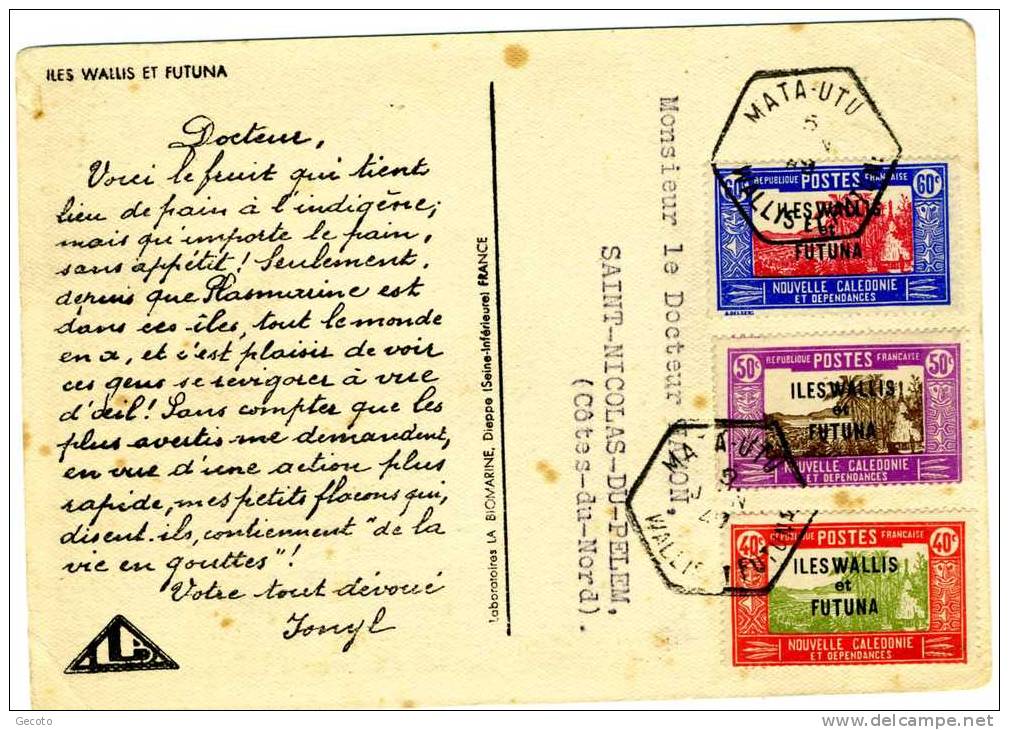 ILES WALLIS ET FUTUNA
Docteur,
Voici le fruit qui tient
lieu de pain à l'indigène;
mais qu'importe le pain,
sans appétit! Seulement,
depuis que Plasmarine est
dans ces îles, tout le monde
en a, et c'est plaisir de voir
ces gens se revigorer à vue
d'œil! Sans compter que les
plus avertis me demandent,
en vue d'une action plus
rapide, mes petits flacons qui,
disent-ils, contiennent "de la
vie en gouttes"!
Votre tout dévoué
Ionyl
Laboratoires LA BIOMARINE, Dieppe (Seine-Inférieure) FRANCE
Monsieur le Docteur
MON,
SAINT-NICOLAS-DU-PELEM,
(Côtes-du-Nord).
MATA-UTU
5
WALLIS ET FUTUNA
REPUBLIQUE POSTES FRANÇAISE
60c 60c
ILES WALLIS
et
FUTUNA
NOUVELLE CALEDONIE
ET DEPENDANCES
REPUBLIQUE POSTES FRANÇAISE
50c 50c
ILES WALLIS
et
FUTUNA
NOUVELLE CALEDONIE
ET DEPENDANCES
MATA-UTU
5
WALLIS ET FUTUNA
REPUBLIQUE POSTES FRANÇAISE
40c 40c
ILES WALLIS
et
FUTUNA
NOUVELLE CALEDONIE
ET DEPENDANCES
Gecoto
www.delcampe.net